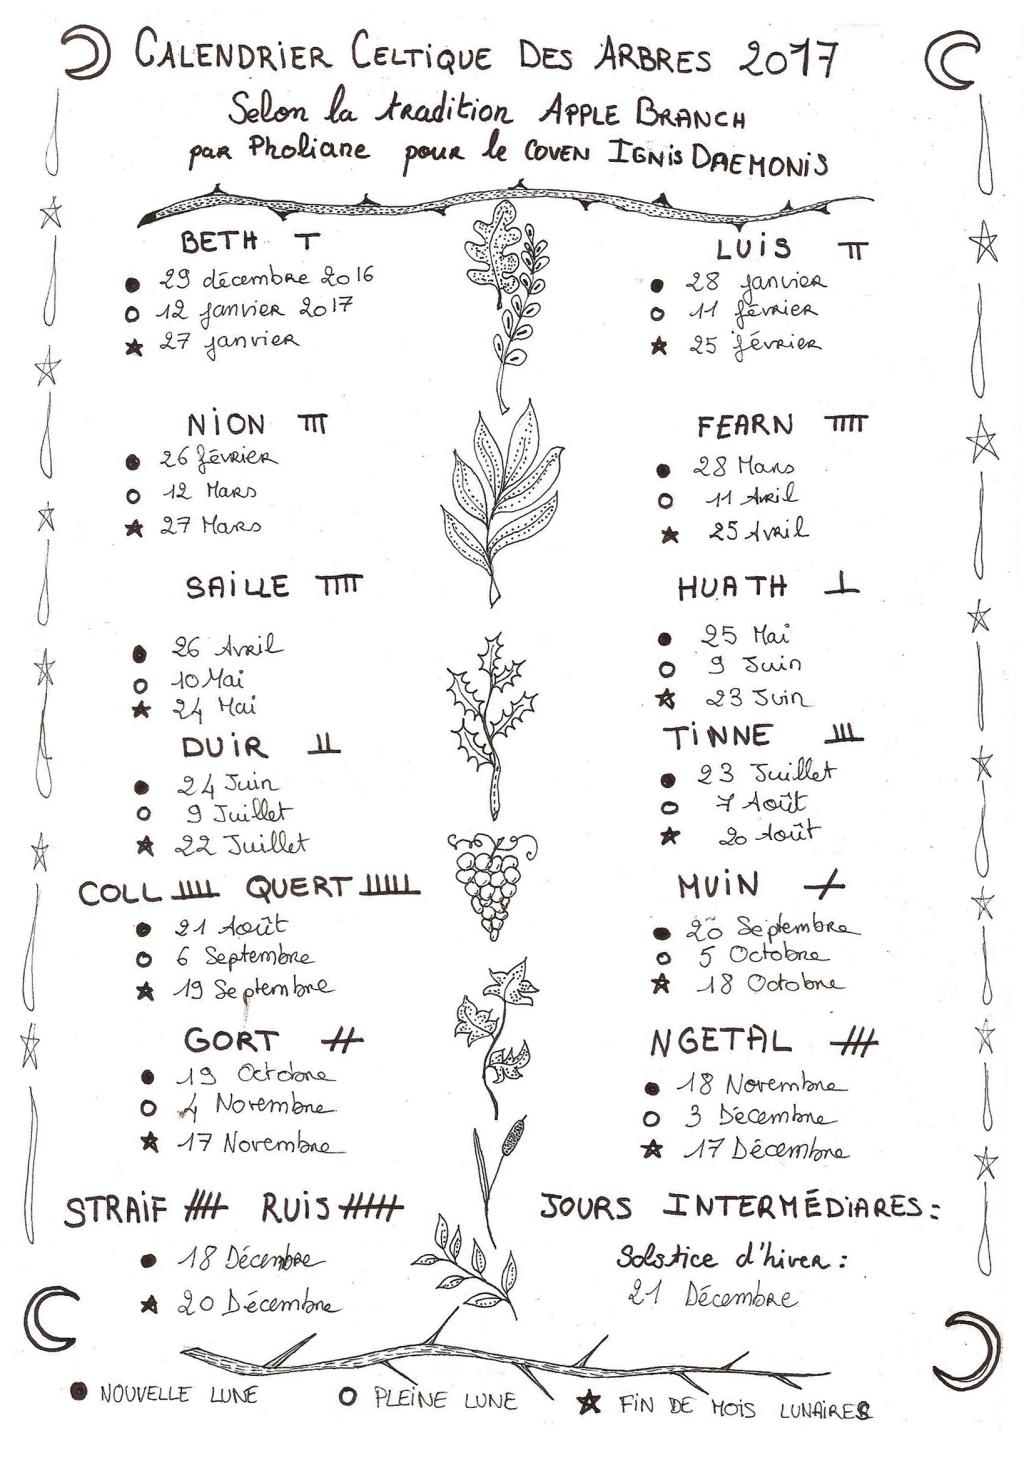 CALENDRIER CELTIQUE DES ARBRES 2017
Selon la tradition APPLE BRANCH
par Pholiane pour le COVEN IGNIS DAEMONIS
BETH
29 décembre 2016
12 janvier 2017
27 janvier
LUIS
28 janvier
11 février
25 février
NION
26 février
12 Mars
27 Mars
FEARN
28 Mars
11 Avril
25 Avril
SAILLE
26 Avril
10 Mai
24 Mai
HUATH
25 Mai
9 Juin
23 Juin
DUIR
24 Juin
9 Juillet
22 Juillet
TINNE
23 Juillet
7 Août
20 Août
COLL QUERT
21 Août
6 Septembre
19 Septembre
MUIN
20 Septembre
5 Octobre
18 Octobre
GORT
19 Octobre
4 Novembre
17 Novembre
NGETAL
18 Novembre
3 Décembre
17 Décembre
STRAIF RUIS
18 Décembre
20 Décembre
JOURS INTERMÉDIARES :
Solstice d'hiver :
21 Décembre
NOUVELLE LUNE PLEINE LUNE FIN DE MOIS LUNAIRES